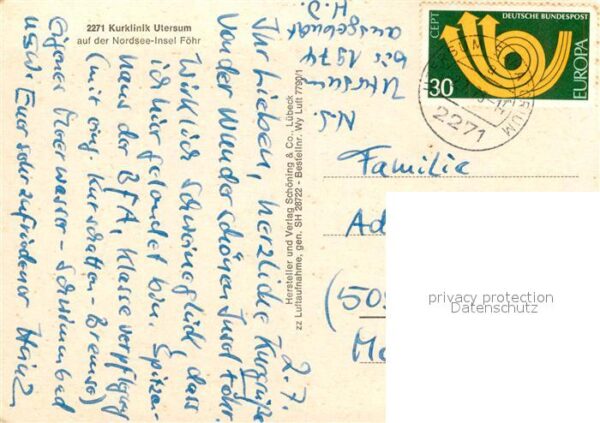 2271 Kurklinik Utersum
auf der Nordsee-Insel Föhr
2.7.
Ihr Lieben, herzliche Kurgrüße
von der wunderschönen Insel Föhr.
Wirklich Schweineglück, dass
ich hier gelandet bin. Spitzen-
haus der BFA, Klasse Verpflegung
(mit eing. Kurschatten-Bremse)
eigenes Meerwasser-Schwimmbad
usw. Euer sehr zufriedener Heinz
N.S.
Utersum
bis 1974
ausgebucht
H.D.
Hersteller und Verlag Schöning & Co., Lübeck
zz Luftaufnahme, gen. SH 26722 - Bestellnr. Wy Luft 7790/1
CEPT
DEUTSCHE BUNDESPOST
EUROPA
30
UTERSUM
2271
Familie
Ad
(505
privacy protection
Datenschutz